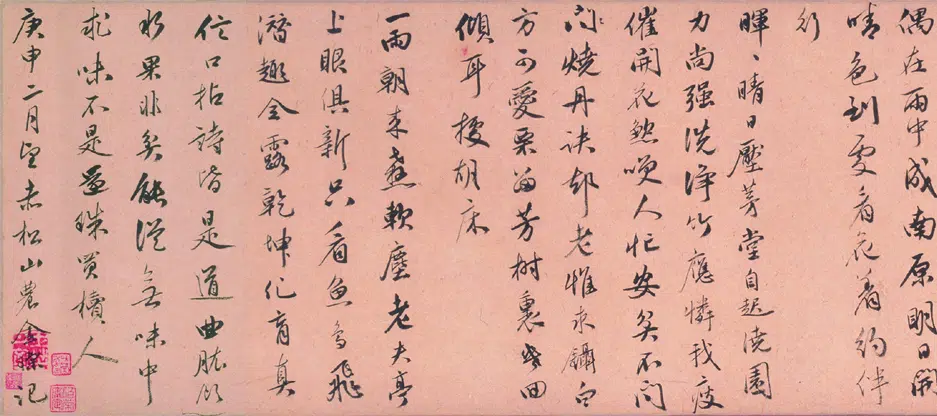 偶在雨中成南原明日開
晴色到處看花着約伴
行
暉〻晴日壓芳堂自起澆園
力尚强洗淨竹應憐我瘦
催開花人忙安矣不問
燒丹訣却老惟求鑷白
方可愛栗留芳樹裏回
傾耳據胡床
一雨朝來軟塵老夫亭
上眼俱新只看魚鳥飛
潛趣全露乾坤化育真
信口拈詩皆是道曲肱飲
水果非矣能從無味中
求味不是還珠買櫝人
庚申二月望赤松山農金琮記